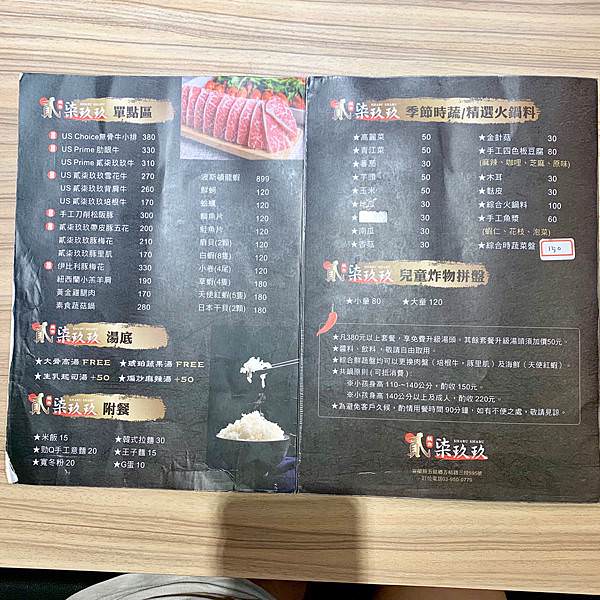 貳 柒玖玖 單點區
US Choice無骨牛小排 380
US Prime 肋眼牛 330
US Prime 貳柒玖玖牛 310
US 貳柒玖玖雪花牛 270
US 貳柒玖玖背肩牛 260
US 貳柒玖玖培根牛 170
手工刀削松阪豚 300
貳柒玖玖帶皮豚五花 200
貳柒玖玖豚梅花 210
貳柒玖玖豚里肌 170
伊比利豚梅花 330
紐西蘭小羔羊肩 190
黃金雞腿肉 140
素食蔬菇鍋 280
波斯頓龍蝦 899
鮮蚵 120
蛤蠣 120
鯛魚片 120
鮭魚片 120
扇貝(2顆) 120
白蝦(8隻) 180
小卷(4尾) 120
草蝦(4隻) 180
天使紅蝦(5隻) 180
日本干貝(2顆) 180
貳 柒玖玖 湯底
★大骨高湯 FREE ★琥珀蔬果湯 FREE
★生乳起司湯 +50 ★煸炒麻辣湯 +50
貳 柒玖玖 附餐
★米飯 15 ★韓式拉麵 30
★勁Q手工意麵 20 ★王子麵 15
★寬冬粉 20 ★G蛋 10
貳 柒玖玖 季節時蔬/精選火鍋料
★高麗菜 50
★青江菜 50
★番茄 30
★芋頭 50
★玉米 50
30
★南瓜 30
★香菇 30
★金針菇 30
★手工四色板豆腐 80
(麻辣、咖哩、芝麻、原味)
★木耳 30
★麩皮 30
★綜合火鍋料 100
★手工魚漿 60
(蝦仁、花枝、泡菜)
★綜合時蔬菜盤 150
貳 柒玖玖 兒童炸物拼盤
★小童 80 ★大童 120
★凡380元以上套餐，享免費升級湯頭。其餘套餐升級湯頭須加價50元。
★醬料、飲料，敬請自由取用。
★綜合鮮蔬盤均可以更換肉盤（培根牛，豚里肌）及海鮮（天使紅蝦）。
★共鍋原則（可抵消費）
※小孩身高 110~140公分，酌收 150元。
※小孩身高 140公分以上及成人，酌收 220元。
★為避免客戶久候，酌情用餐時間 90分鐘，如有不便之處，敬請見諒。
貳 柒玖玖
宜蘭縣五結鄉五結路三段595號
訂位電話03-950-0775